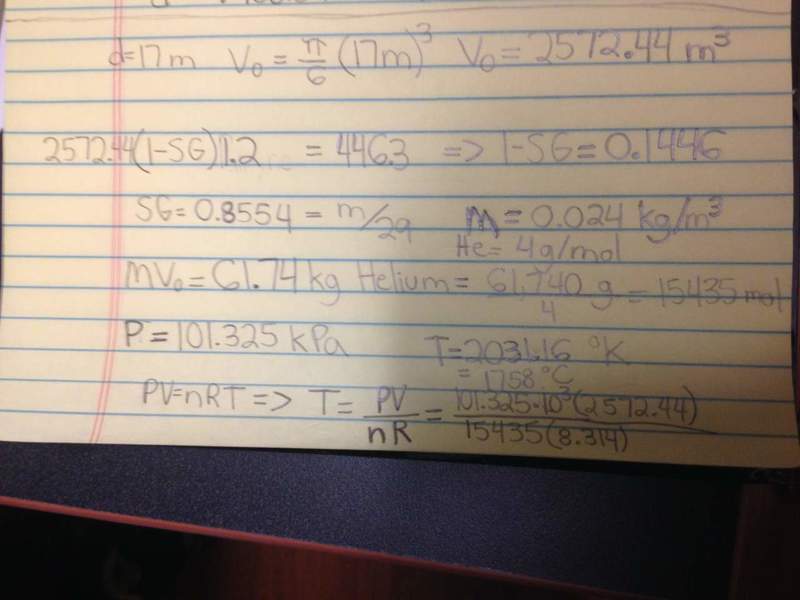 d=17m V₀ = π/6 (17m)³ V₀ = 2572.44 m³
2572.44(1-SG)1.2 = 446.3 => 1-SG = 0.1446
SG = 0.8554 = m/29 m = 0.024 kg/m³
He = 4g/mol
mV₀ = 61.74 kg Helium = 61,740 g / 4 = 15435 mol
P = 101.325 kPa T = 2031.16 °K
= 1758 °C
PV=nRT => T = PV/nR = 101.325·10³(2572.44) / 15435(8.314)